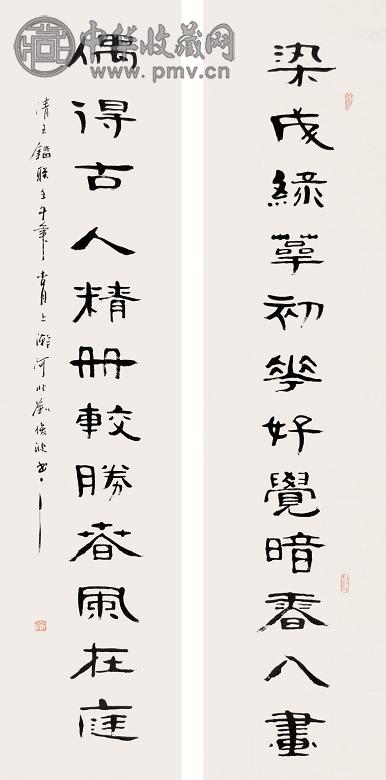 中华收藏网
www.pmv.cn
染成綠萼初華好覺暗香入畫
偶得古人精冊較勝春風在庭
清王鑑聯壬午年 上澣河北劉俊 書